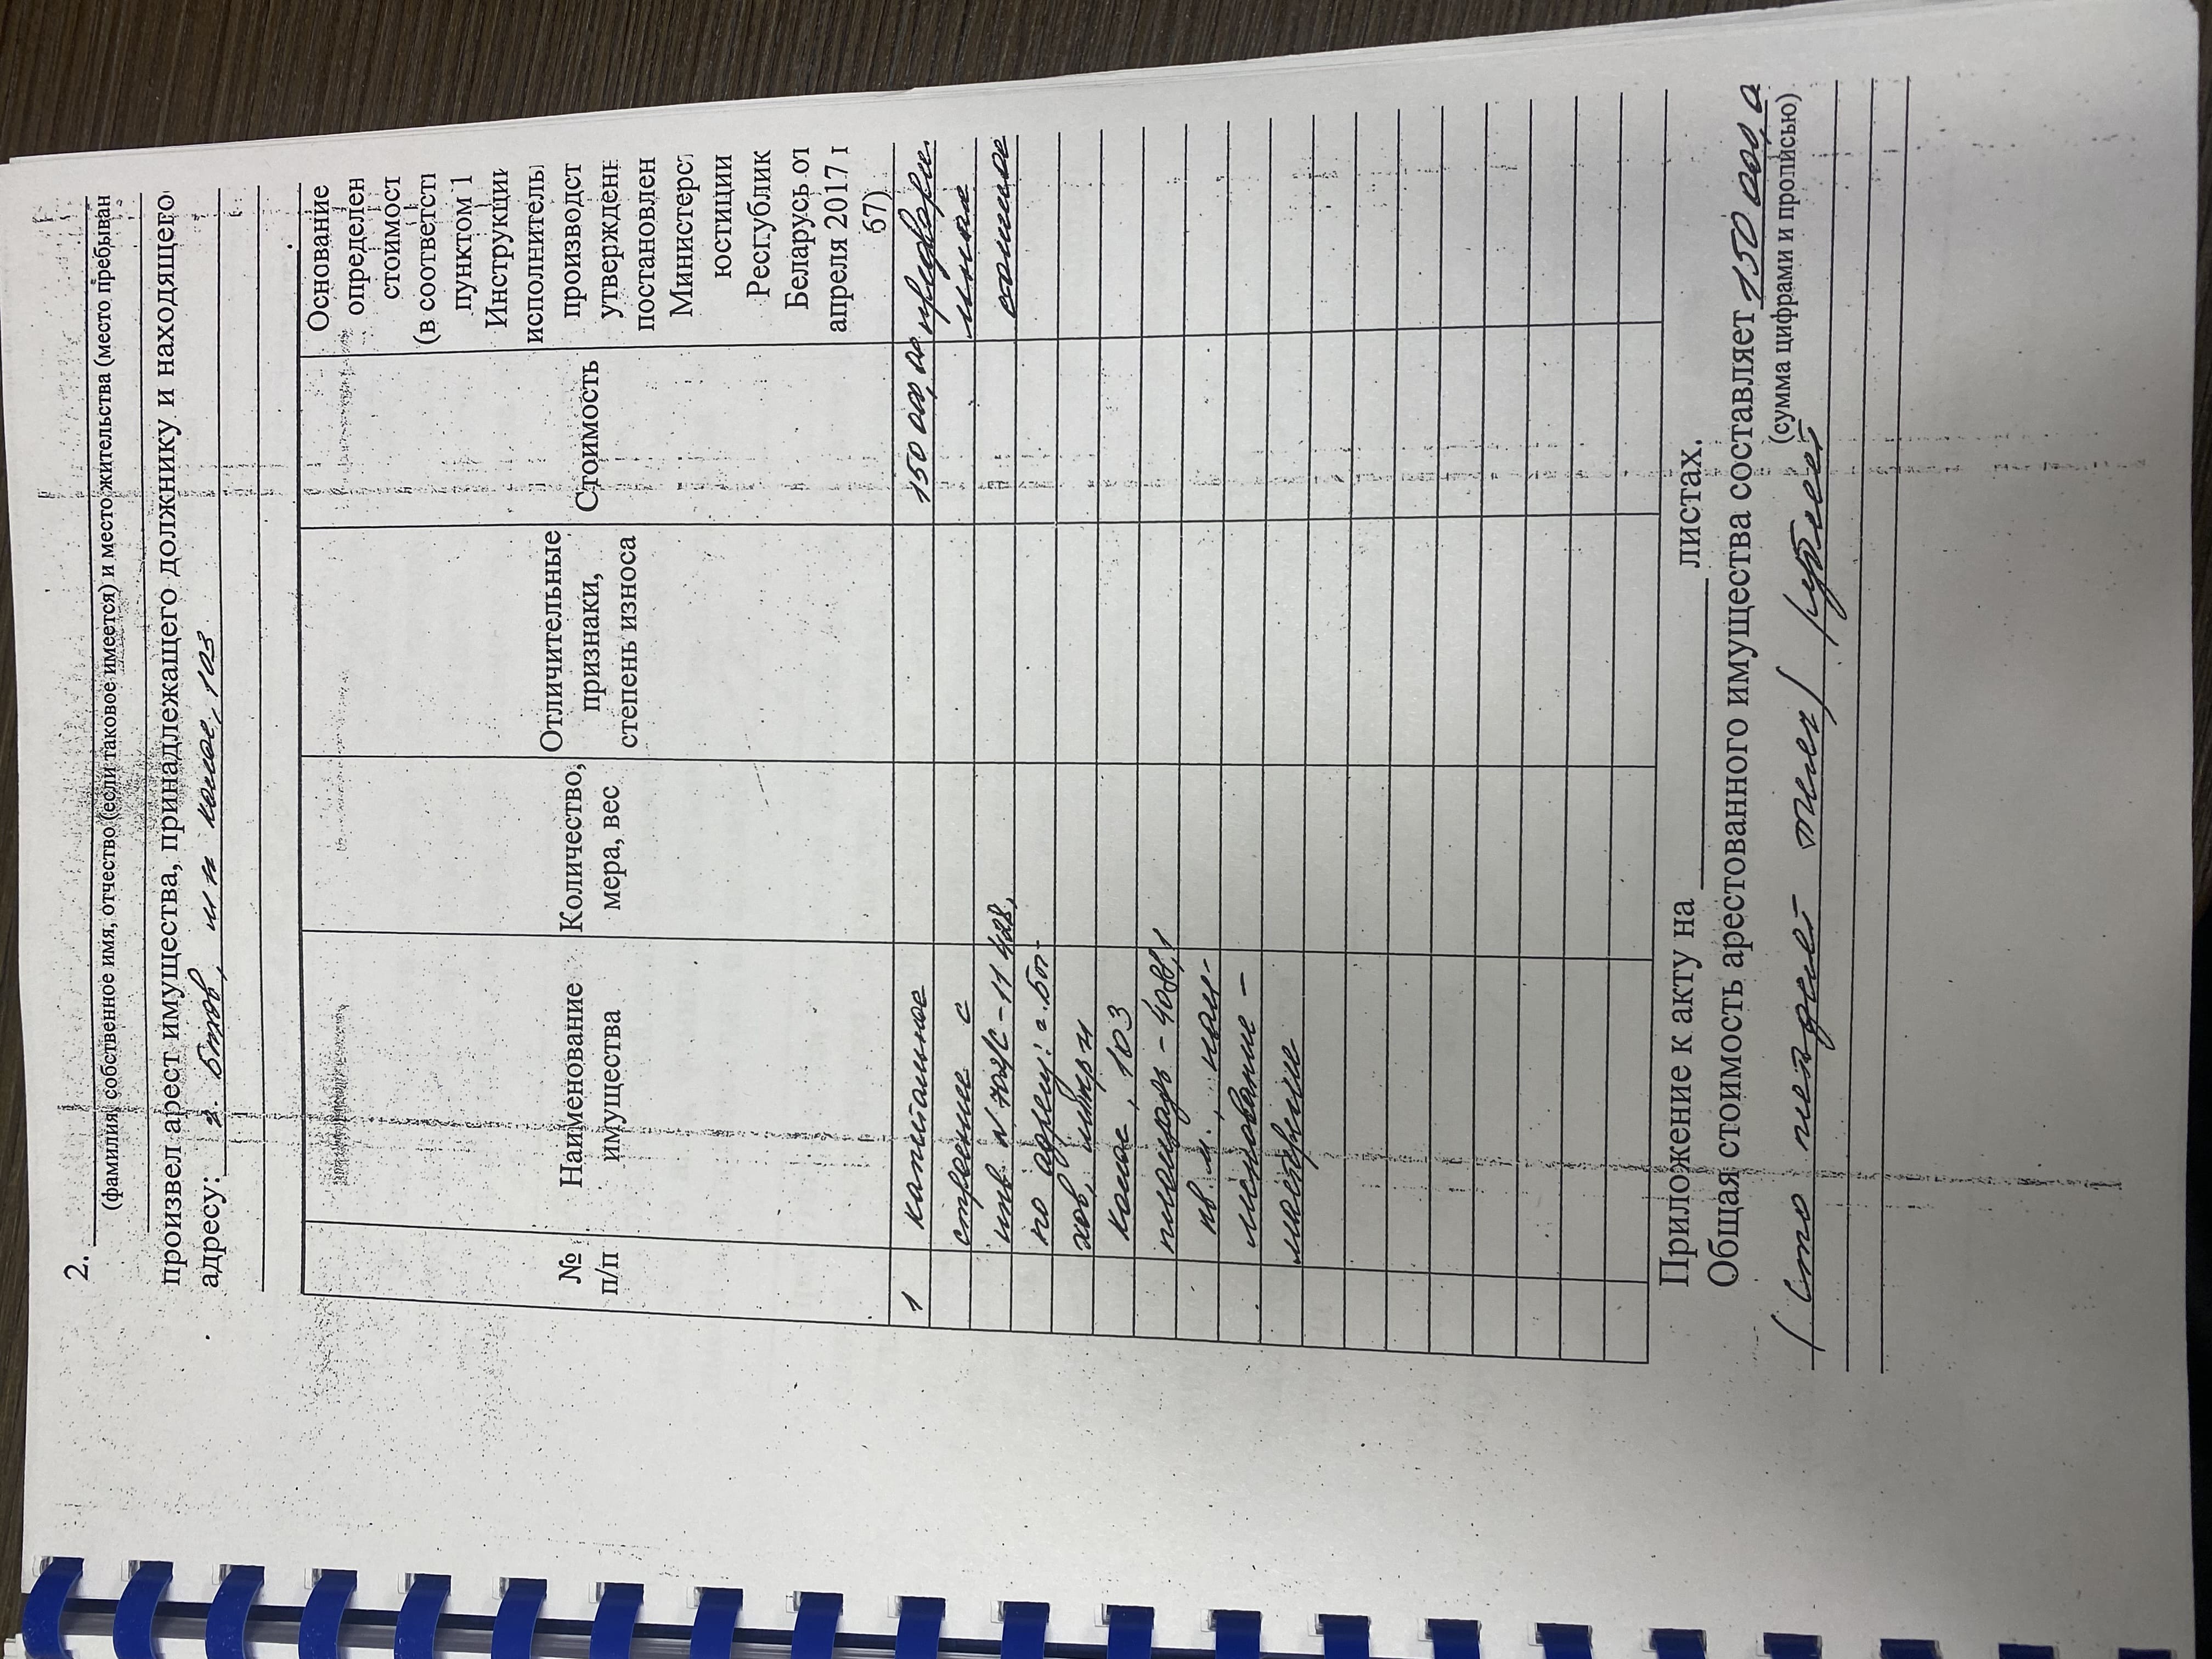 2.
(фамилия, собственное имя, отчество (если таковое имеется) и место жительства (место пребыван
произвел арест имущества, принадлежащего должнику и находящего
адресу: г. 103
№ п/п
Наименование имущества
Количество, мера, вес
Отличительные признаки, степень износа
Стоимость
Основание
определен
стоимост
(в соответстг
пунктом 1
Инструкции
исполнитель
производст
утвержден
постановлен
Министерст
юстиции
Республик
Беларусь от
апреля 2017 г
67)
1 капитальное 150 000,00
строение с
инв N
по адресу: г.
103
площадь -
кв. м., наи-
менование -
Приложение к акту на листах.
Общая стоимость арестованного имущества составляет 150 000,0
(сумма цифрами и прописью)
(сто пятьдесят тысяч) рублей